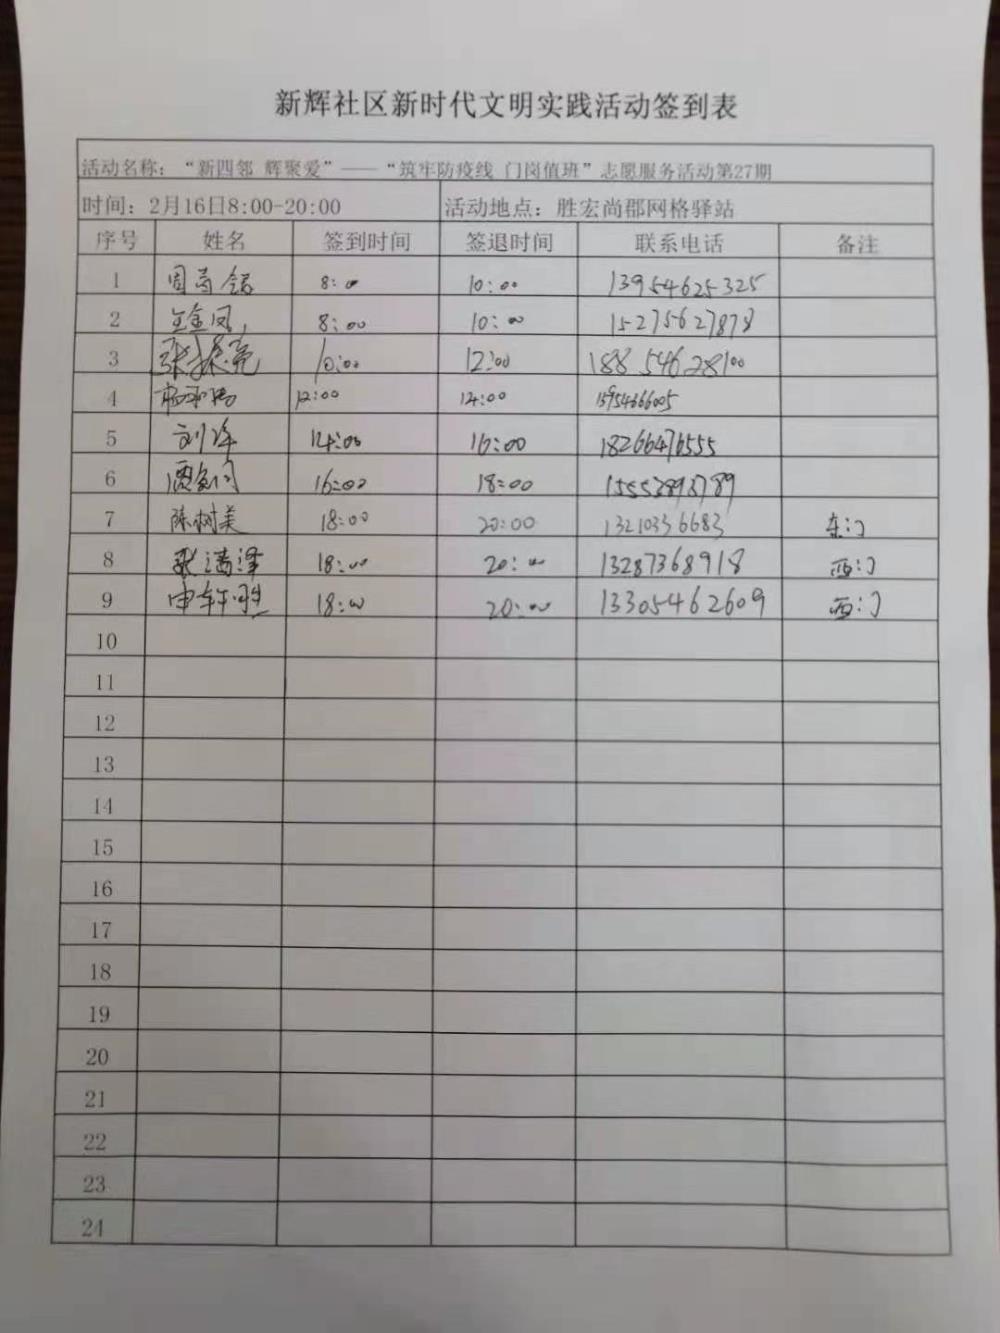 新辉社区新时代文明实践活动签到表
活动名称：“新四邻 辉聚爱”——“筑牢防疫线 门岗值班”志愿服务活动第27期
时间：2月16日8:00-20:00 活动地点：胜宏尚郡网格驿站
序号 姓名 签到时间 签退时间 联系电话 备注
1 8:00 10:00 13954625325
2 王金凤 8:00 10:00 15275627878
3 张振亮 10:00 12:00 18854628100
4 12:00 14:00 13954666005
5 刘 14:00 16:00 18266476555
6 16:00 18:00
7 陈树美 18:00 20:00 13210336683 东门
8 张清泽 18:00 20:00 13287368918 西门
9 申 18:00 20:00 13305462609 西门
10
11
12
13
14
15
16
17
18
19
20
21
22
23
24